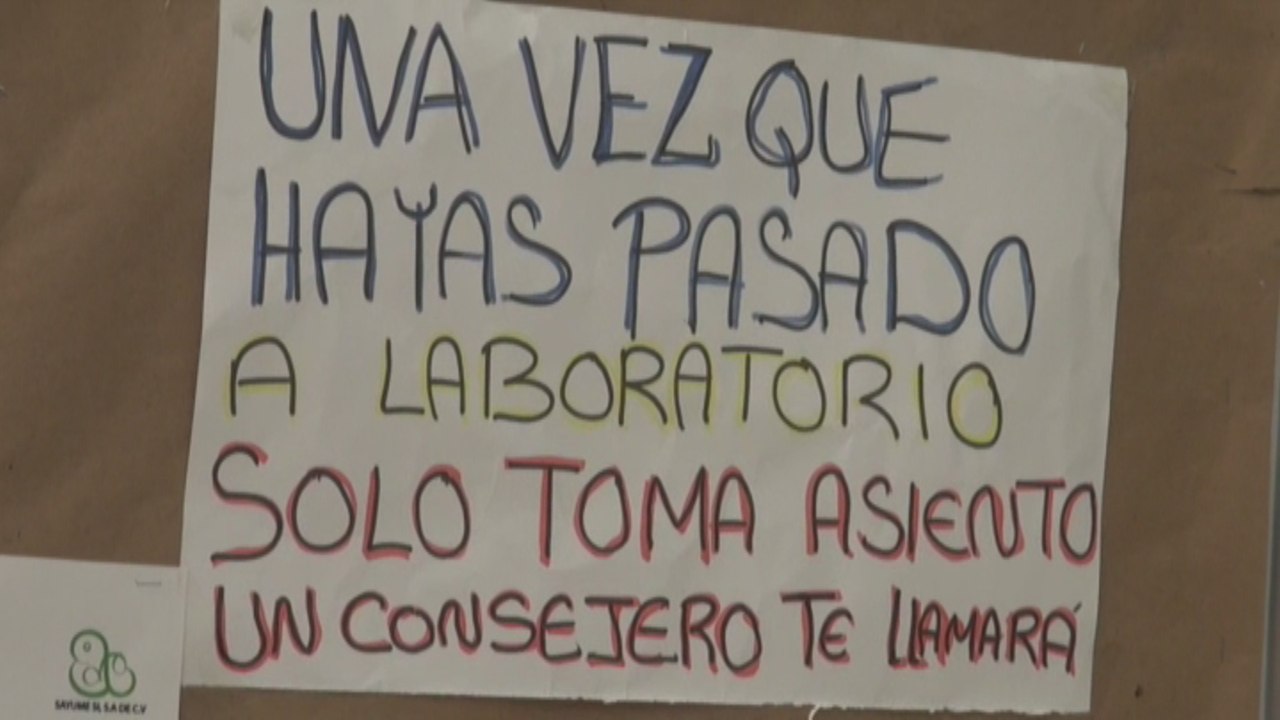 UNA VEZ QUE
HAYAS PASADO
A LABORATORIO
SOLO TOMA ASIENTO
UN CONSEJERO TE LLAMARÁ
SAYUME SI, S.A DE C.V